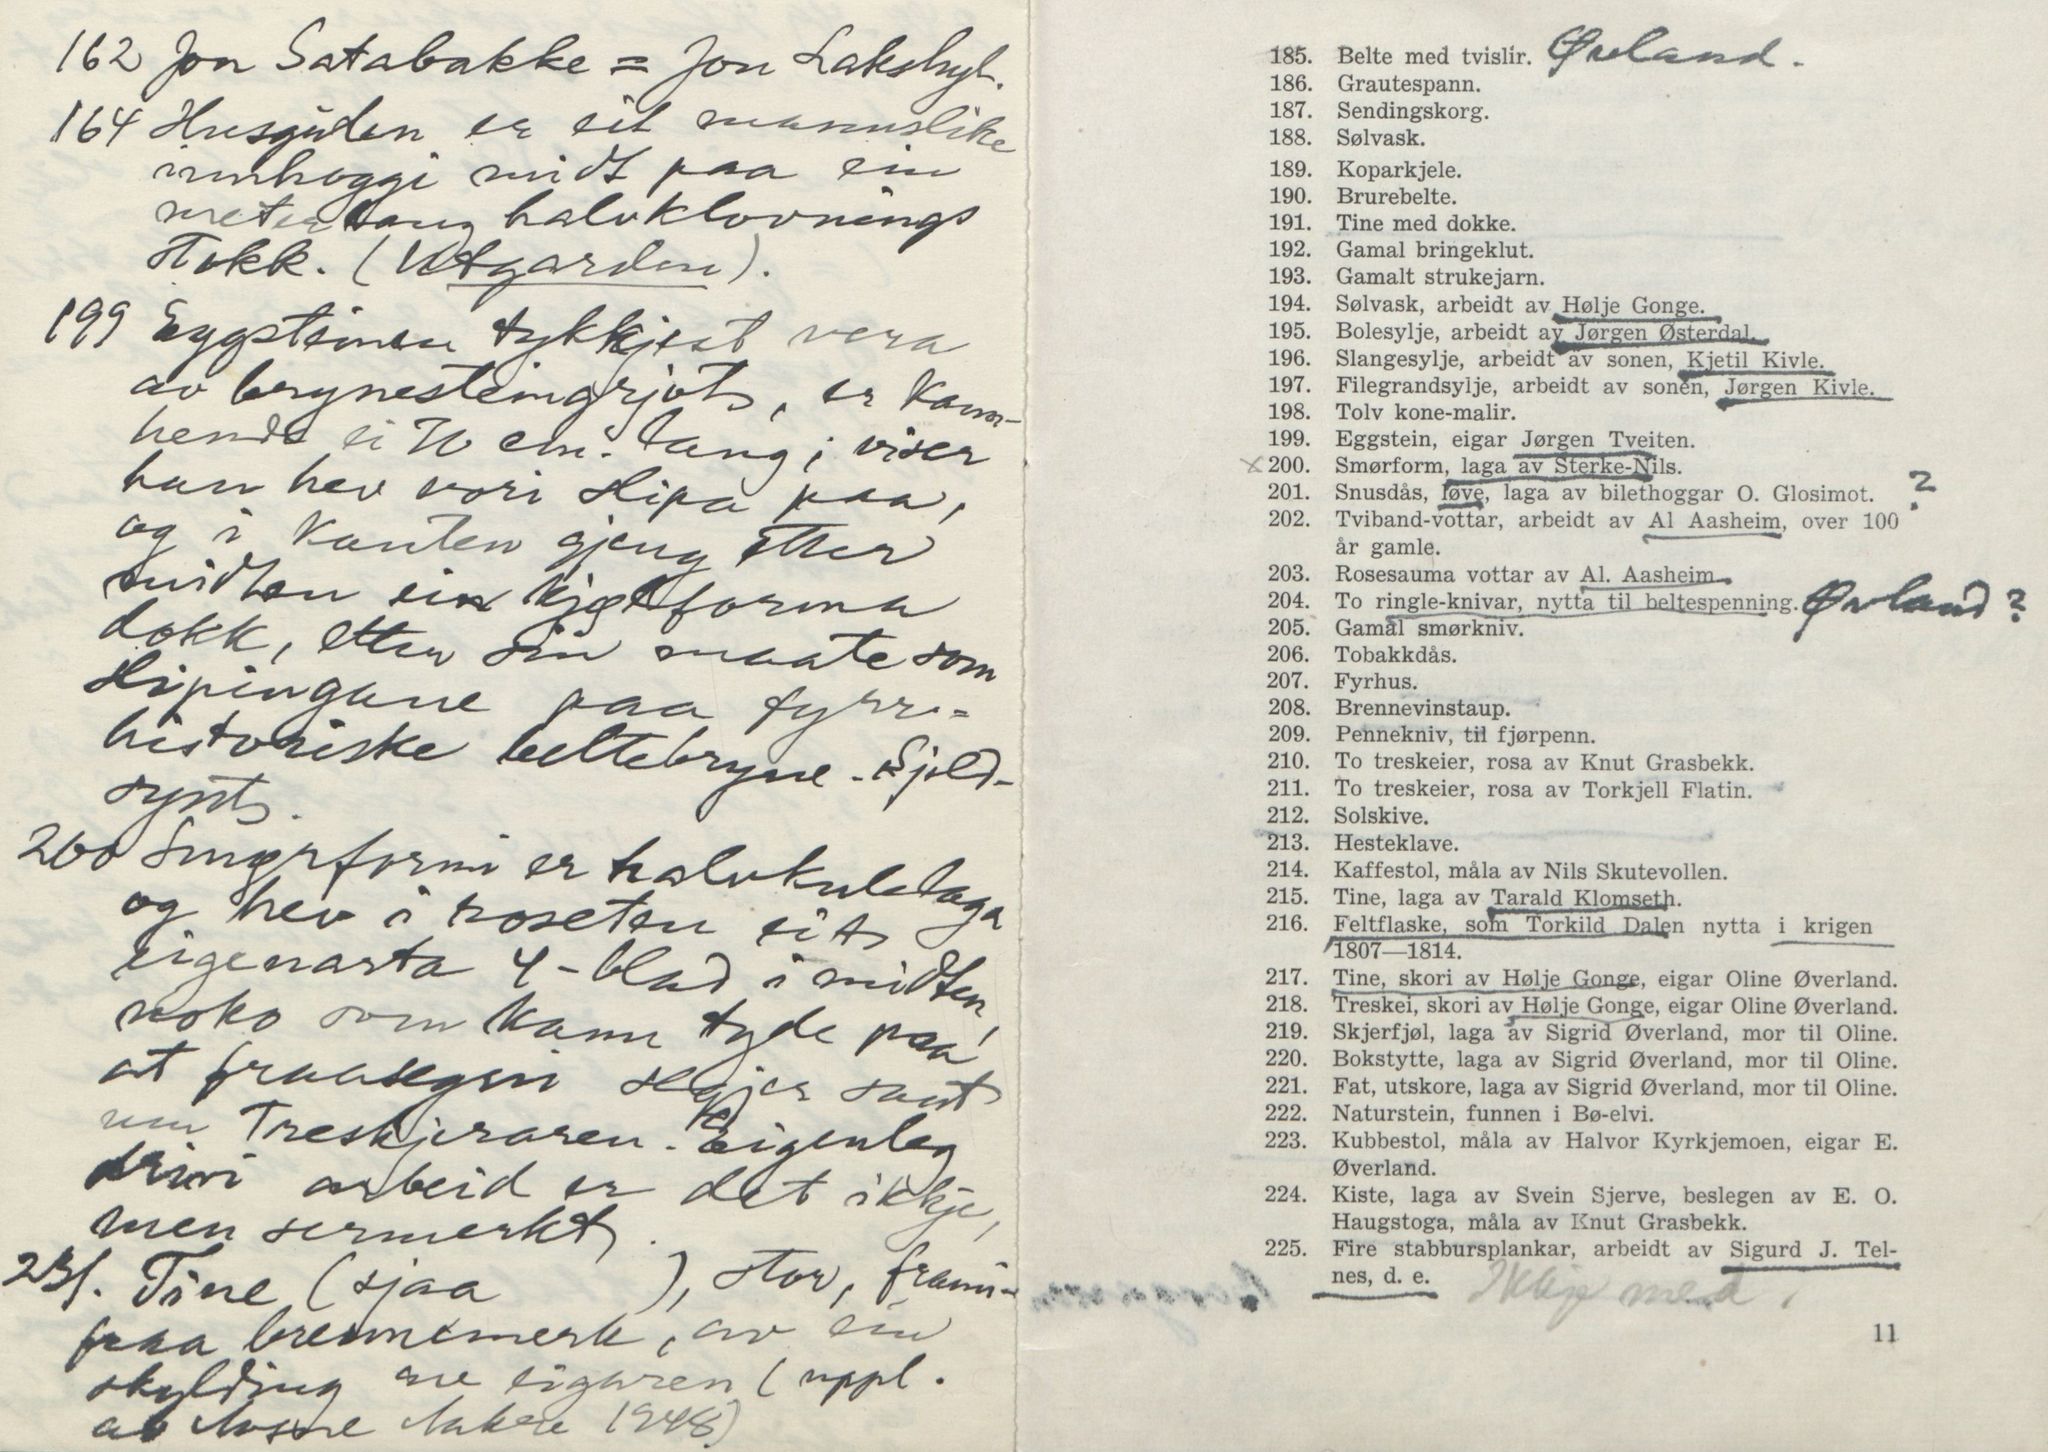 162 Jon Satabakke = Jon Lakshyl.
164 Husguden er eit mannslike
innhoggi midt paa ein
meterlang halvklovnings
stokk. (Utgarden).
199 Eggsteinen tykkjest vera
av brynesteingrjot, er kann-
hende ei 70 cm. lang; viser
han hev vori slipa paa,
og i kanten gjeng etter
midten ein kjølforma
dokk, etter sin maate som
slipingane paa fyrre-
historiske beltebryne. Sjeld-
synt.
200 Smørformi er halvkulelaga
og hev i roseten eit
eigenarta 4-blad i midten,
noko som kann tyde paa
at fraasegni segjer sant
um Treskjeraren. Eigenleg
drivi arbeid er det ikkje,
men sermerkt.
231. Tine (sjaa ), stor, frami-
fraa brennemerk, av ein
skylding av eigaren (uppl.
av Aasne Aakre 1948)
185. Belte med tvislir. Øverland.
186. Grautespann.
187. Sendingskorg.
188. Sølvask.
189. Koparkjele.
190. Brurebelte.
191. Tine med dokke.
192. Gamal bringeklut.
193. Gamalt strukejarn.
194. Sølvask, arbeidt av Hølje Gonge.
195. Bolesylje, arbeidt av Jørgen Østerdal.
196. Slangesylje, arbeidt av sonen, Kjetil Kivle.
197. Filegrandsylje, arbeidt av sonen, Jørgen Kivle.
198. Tolv kone-malir.
199. Eggstein, eigar Jørgen Tveiten.
x 200. Smørform, laga av Sterke-Nils.
201. Snusdås, løve, laga av bilethoggar O. Glosimot. ?
202. Tviband-vottar, arbeidt av Al Aasheim, over 100
år gamle.
203. Rosesauma vottar av Al. Aasheim.
204. To ringle-knivar, nytta til beltespenning. Øverland?
205. Gamal smørkniv.
206. Tobakkdås.
207. Fyrhus.
208. Brennevinstaup.
209. Pennekniv, til fjørpenn.
210. To treskeier, rosa av Knut Grasbekk.
211. To treskeier, rosa av Torkjell Flatin.
212. Solskive.
213. Hesteklave.
214. Kaffestol, måla av Nils Skutevollen.
215. Tine, laga av Tarald Klomseth.
216. Feltflaske, som Torkild Dalen nytta i krigen
1807—1814.
217. Tine, skori av Hølje Gonge, eigar Oline Øverland.
218. Treskei, skori av Hølje Gonge, eigar Oline Øverland.
219. Skjerfjøl, laga av Sigrid Øverland, mor til Oline.
220. Bokstytte, laga av Sigrid Øverland, mor til Oline.
221. Fat, utskore, laga av Sigrid Øverland, mor til Oline.
222. Naturstein, funnen i Bø-elvi.
223. Kubbestol, måla av Halvor Kyrkjemoen, eigar E.
Øverland.
224. Kiste, laga av Svein Sjerve, beslegen av E. O.
Haugstoga, måla av Knut Grasbekk.
225. Fire stabbursplankar, arbeidt av Sigurd J. Tel-
nes, d. e. Ikkje med.
11